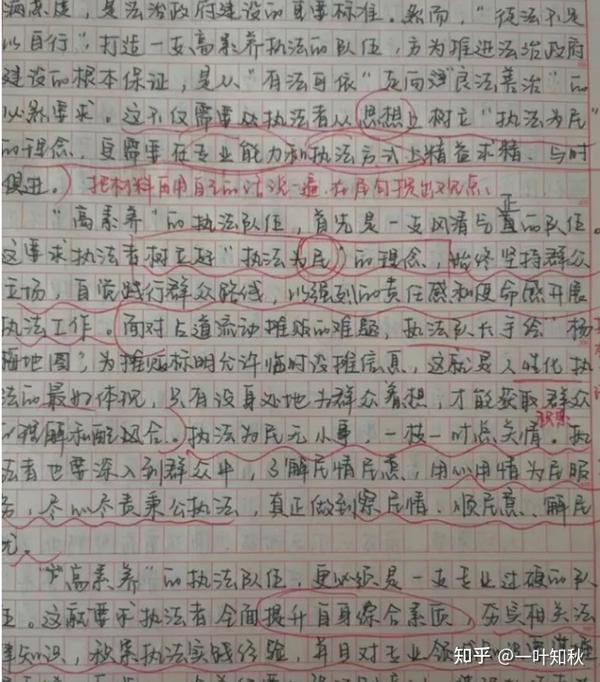 满意度，是法治政府建设的重要标准。然而，“徒法不足
以自行”，打造一支高素养执法的队伍，方为推进法治政府
建设的根本保证，是从“有法可依”走向“良法善治”的
必然要求。这不仅需要从执法者从思想上树立“执法为民”
的理念，更需要在专业能力和执法方式上精益求精、与时
俱进。
把材料用自己的话说一遍，在尾句提出观点。
正
“高素养”的执法队伍，首先是一支风清气直的队伍。
这要求执法者树立好“执法为民”的理念，始终坚持群众
立场，自觉践行群众路线，以强烈的责任感和使命感开展
执法工作。面对占道流动摊贩的难题，执法队长手绘“杨
梅地图”，为摊贩标明允许临时设摊信息，这就是人性化执
法的最好体现，只有设身处地为群众着想，才能获取群众
的理解和配合。执法为民无小事，一枝一叶总关情。执
法者也要深入到群众中，了解民情民意，用心用情为民服
务，尽心尽责秉公执法，真正做到察民情、顺民意、解民
忧。
“高素养”的执法队伍，更必须是一支专业过硬的队
伍。这就要求执法者全面提升自身综合素质，夯实相关法
律知识，积累执法实践经验，并且对专业领域
知乎 @一叶知秋